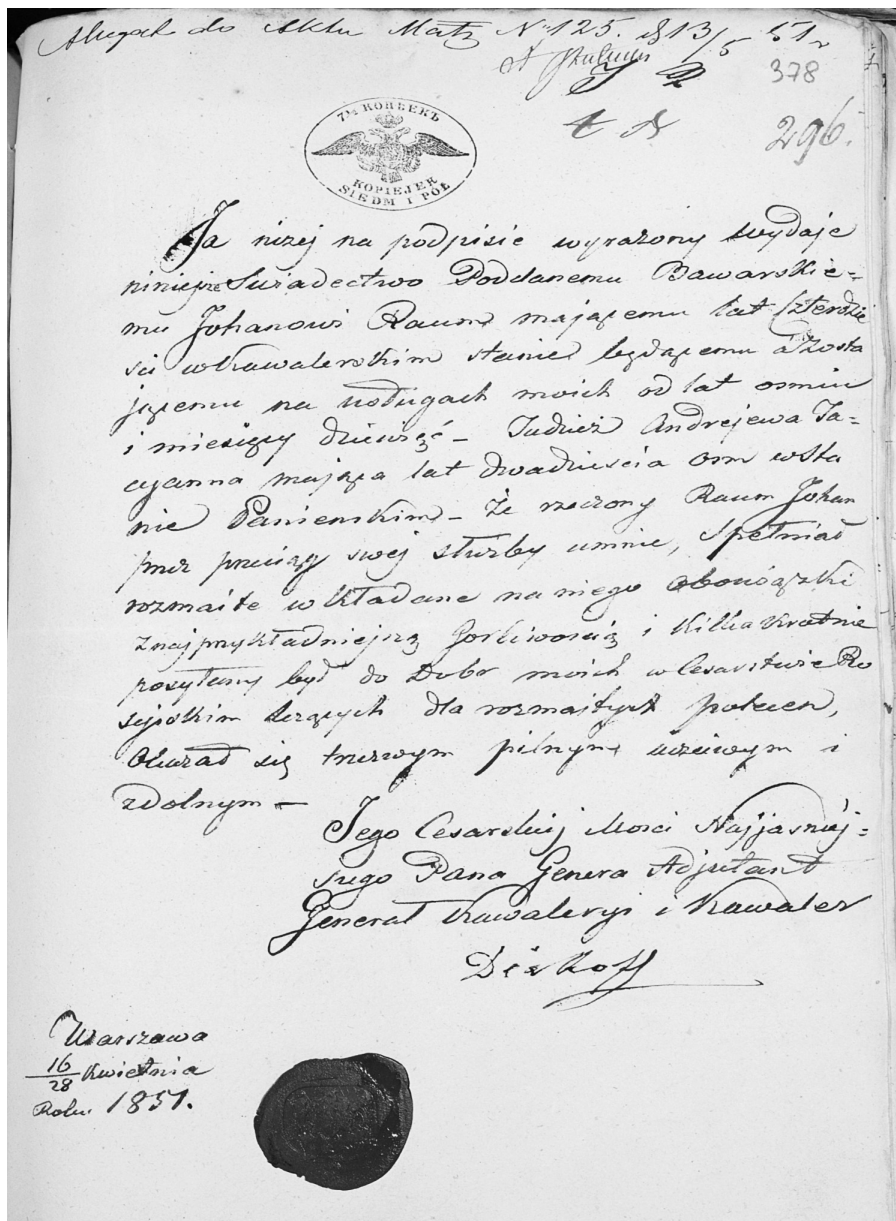 Alegat do Aktu Małż Nº 125. d 13/5 51 r
378
296.
7½ КОПѢЕКЪ
KOPIEJEK
SIEDM I PÓŁ
Ja niżej na podpisie wyrażony wydaje
niniejsze Swiadectwo Poddanemu Bawarskie=
mu Johanowi Raum mającemu lat Czterdzie
sci w Kawalerskim stanie będącemu a Zosta
jącemu na usługach moich od lat osmiu
i miesięcy dziewięć – Tudzież Andrejewa Ta=
cyanna mająca lat dwadzieścia osm w Sta
nie Panienskim – że rzeczony Raum Johan
przez przeciąg swej służby umnie, Spełniał
rozmaite wkładane na niego obowiązki
z najprzykładniejszą Gorliwością i Kilkakrotnie
posyłany był do Dobr moich w Cesarstwie Ro
syjskim leżących dla rozmajtych poleceń,
Okazał się trzezwym pilnym uczciwym i
zdolnym –
Jego Cesarskiej Mosci Najjasniej=
szego Pana Genera Adjutant
Generał Kawaleryi i Kawaler
Warszawa
16/28 Kwietnia
Roku 1851.